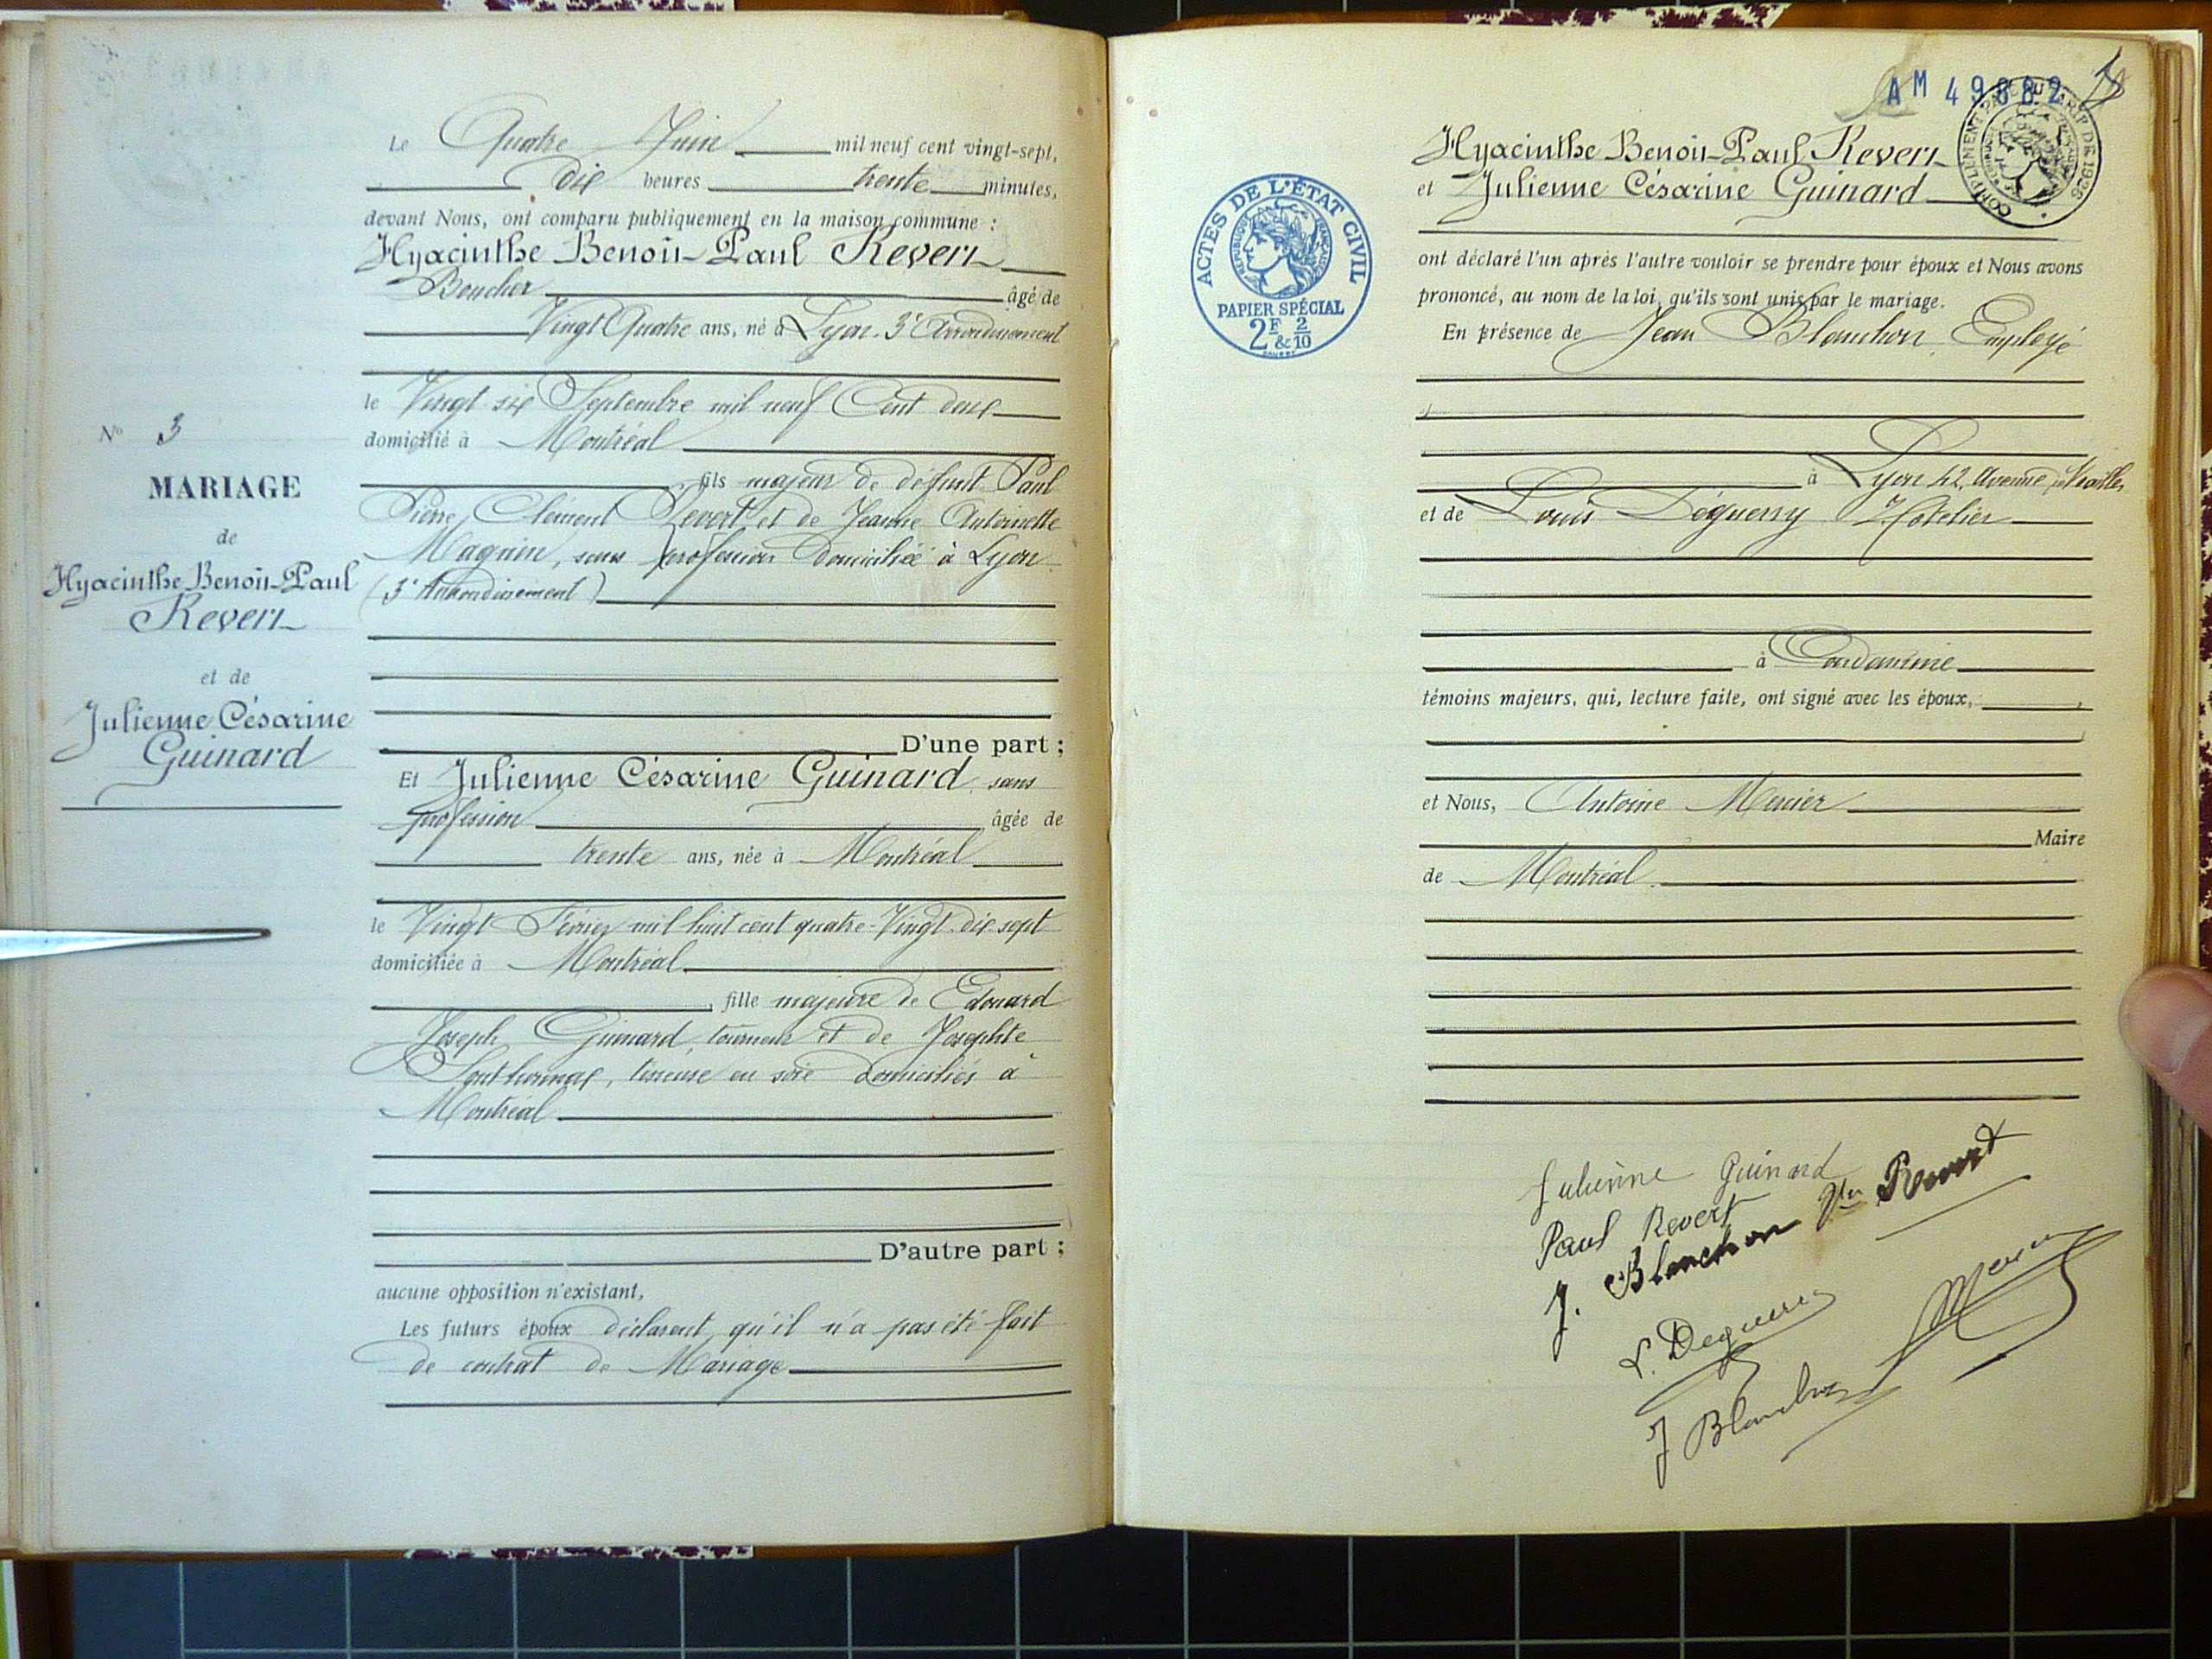 Le Quatre Juin mil neuf cent vingt-sept,
dix heures trente minutes,
devant Nous, ont comparu publiquement en la maison commune :
Hyacinthe Benoit Paul Revert
Boucher âgé de
Vingt Quatre ans, né à Lyon. 3e Arrondissement
le Vingt six Septembre mil neuf Cent deux
domicilié à Montréal
fils majeur de défunt Paul
Pierre Clément Revert et de Jeanne Antoinette
Magnin, sans profession domiciliée à Lyon
(3e Arrondissement)
D'une part ;
Et Julienne Césarine Guinard sans
profession âgée de
trente ans, née à Montréal
le Vingt Février mil huit cent quatre-Vingt dix sept
domiciliée à Montréal
fille majeure de Edouard
Joseph Guinard, tourneur et de Josephte
tisseuse en soie domiciliés à
Montréal
D'autre part ;
aucune opposition n'existant,
Les futurs époux déclarent qu'il n'a pas été fait
de contrat de Mariage
No 3
MARIAGE
de
Hyacinthe Benoit Paul
Revert
et de
Julienne Césarine
Guinard
AM 49882
COMPLEMENT DE 1926
Hyacinthe Benoit Paul Revert
et Julienne Césarine Guinard
ACTES DE L'ÉTAT CIVIL
RÉPUBLIQUE FRANÇAISE
PAPIER SPÉCIAL
2F & 2/10
ont déclaré l'un après l'autre vouloir se prendre pour époux et Nous avons
prononcé, au nom de la loi, qu'ils sont unis par le mariage.
En présence de Jean Blanchon, Employé
à Lyon 42, Avenue
et de Louis Déguerry Hotelier
à Condamine
témoins majeurs, qui, lecture faite, ont signé avec les époux,
et Nous, Antoine Mercier
Maire
de Montréal
Julienne Guinard
Paul Revert Vve Revert
J. Blanchon
L. Deguerry
J Blanchon